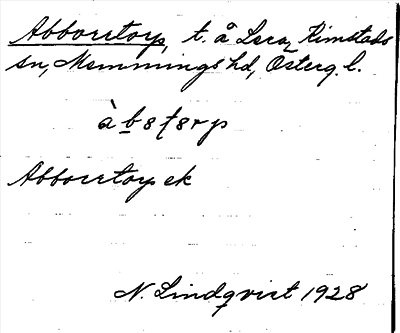 Abborrtorp, t. å Lera, Rimstads
sn, Memmings hd, Österg. l.
àb8t8rp
Abborrtorp ek
N. Lindqvist 1928